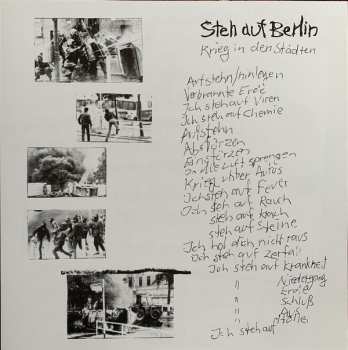 Steh auf Berlin
Krieg in den Städten
Aufstehn/hinlegen
Verbrannte Erde
Ich steh auf Viren
Ich steh auf Chemie
Aufstehn
Abstürzen
Einstürzen
In die Luft sprengen
Krieg unter Autos
Ich steh auf Feuer
Ich steh auf Rauch
steh auf Krach
steh auf Steine
Ich hol dich nicht raus
Ich steh auf Zerfall
Ich steh auf Krankheit
" Niedergang
" Ende
" Schluß
" Aus
Ich steh auf